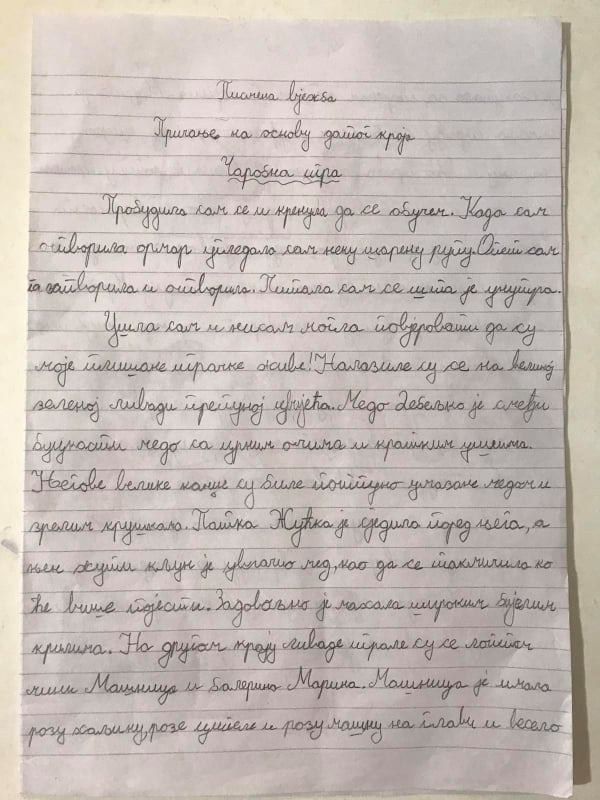 Писмена вјежба
Причање на основу датог краја
Чаробна игра
Пробудила сам се и кренула да се обучем. Када сам
отворила ормар угледала сам неку шарену рупу. Опет сам
га затворила и отворила. Питала сам се шта је унутра.
Ушла сам и нисам могла повјеровати да су
моје плишане играчке живе! Налазиле су се на великој
зеленој ливади препуној цвијећа. Медо Дебељко је смеђи
буцкасти медо са црним очима и кратким ушима.
Његове велике канџе су биле потпуно умазане медом и
зрелим крушкама. Патка Жућка је сједила поред њега, а
њен жути кљун је увлачио мед, као да се такмичила ко
ће више појести. Задовољно је махала широким бијелим
крилима. На другом крају ливаде играле су се лоптом
мини Машница и балерина Марина. Машница је имала
розу хаљину, розе ципеле и розу машну на глави и весело